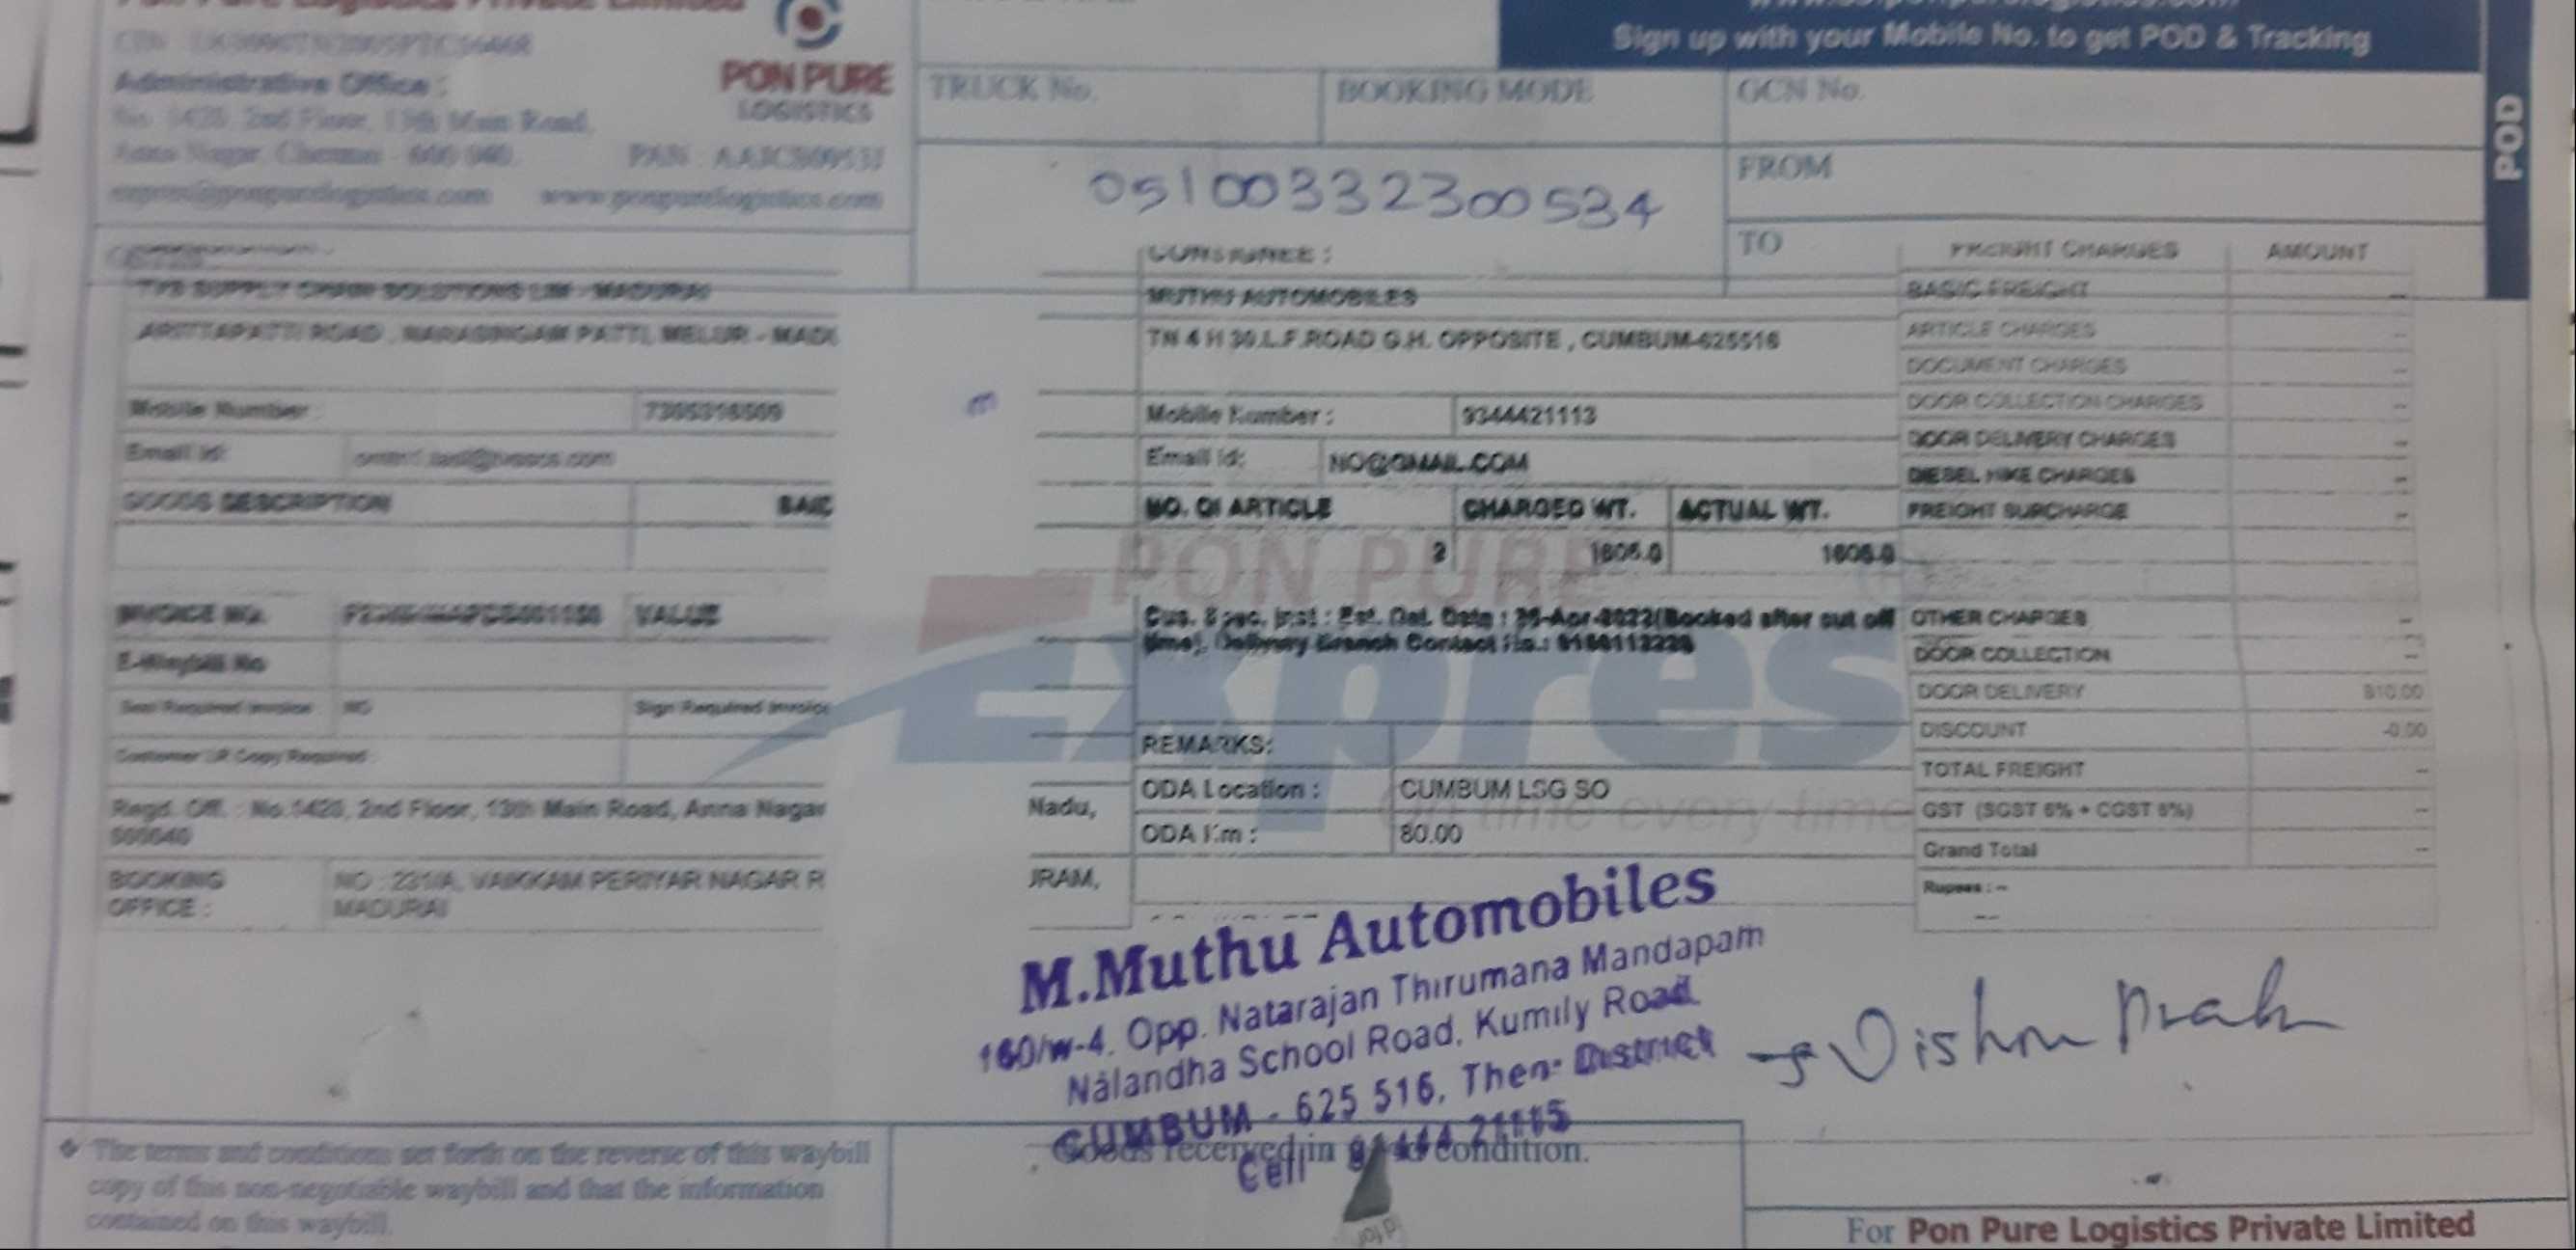 Pon Pure Logistics Private Limited
Administrative Office :
No. 1420, 2nd Floor, 13th Main Road,
Anna Nagar, Chennai - 600 040.
PAN :
www.ponpurelogistics.com
PON PURE
LOGISTICS
Sign up with your Mobile No. to get POD & Tracking
POD
TRUCK No.
BOOKING MODE
GCN No.
FROM
TO
05100332300534
TVS SUPPLY CHAIN SOLUTIONS LIM - MADURAI
ARITTAPATTI ROAD , NARASINGAM PATTI, MELUR - MADU
Mobile Number
Email id:
GOODS DESCRIPTION
SAID
INVOICE No.
VALUE
E-Waybill No
Seal Required Invoice NO Sign Required Invoice
Customer LR Copy Required
Regd. Off. : No.1420, 2nd Floor, 13th Main Road, Anna Nagar
600040
Nadu,
BOOKING
OFFICE :
NO : 231/A, VAIKKAM PERIYAR NAGAR R
MADURAI
URAM,
CONSIGNEE :
MUTHU AUTOMOBILES
TN 4 H 30.L.F.ROAD G.H. OPPOSITE , CUMBUM-625516
Mobile Number : 9344421113
Email id: NO@GMAIL.COM
NO. Of ARTICLE CHARGED WT. ACTUAL WT.
2 1605.0 1605.0
PON PURE
Express
On time every time
Cus. Spec. Inst : Est. Del. Date : Apr-2022(Booked after cut off
time). Delivery Branch Contact No.:
REMARKS:
ODA Location : CUMBUM LSG SO
ODA Km : 80.00
FREIGHT CHARGES AMOUNT
BASIC FREIGHT --
ARTICLE CHARGES --
DOCUMENT CHARGES --
DOOR COLLECTION CHARGES --
DOOR DELIVERY CHARGES --
DIESEL HIKE CHARGES --
FREIGHT SURCHARGE --
OTHER CHARGES --
DOOR COLLECTION --
DOOR DELIVERY 810.00
DISCOUNT -0.00
TOTAL FREIGHT --
GST (SGST 6% + CGST 6%) --
Grand Total --
Rupees : --
--
M.Muthu Automobiles
160/w-4. Opp. Natarajan Thirumana Mandapam
Nalandha School Road, Kumily Road
CUMBUM - 625 516, Theni District
Cell
Goods received in good condition.
The terms and conditions set forth on the reverse of this waybill
copy of this non-negotiable waybill and that the information
contained on this waybill.
For Pon Pure Logistics Private Limited